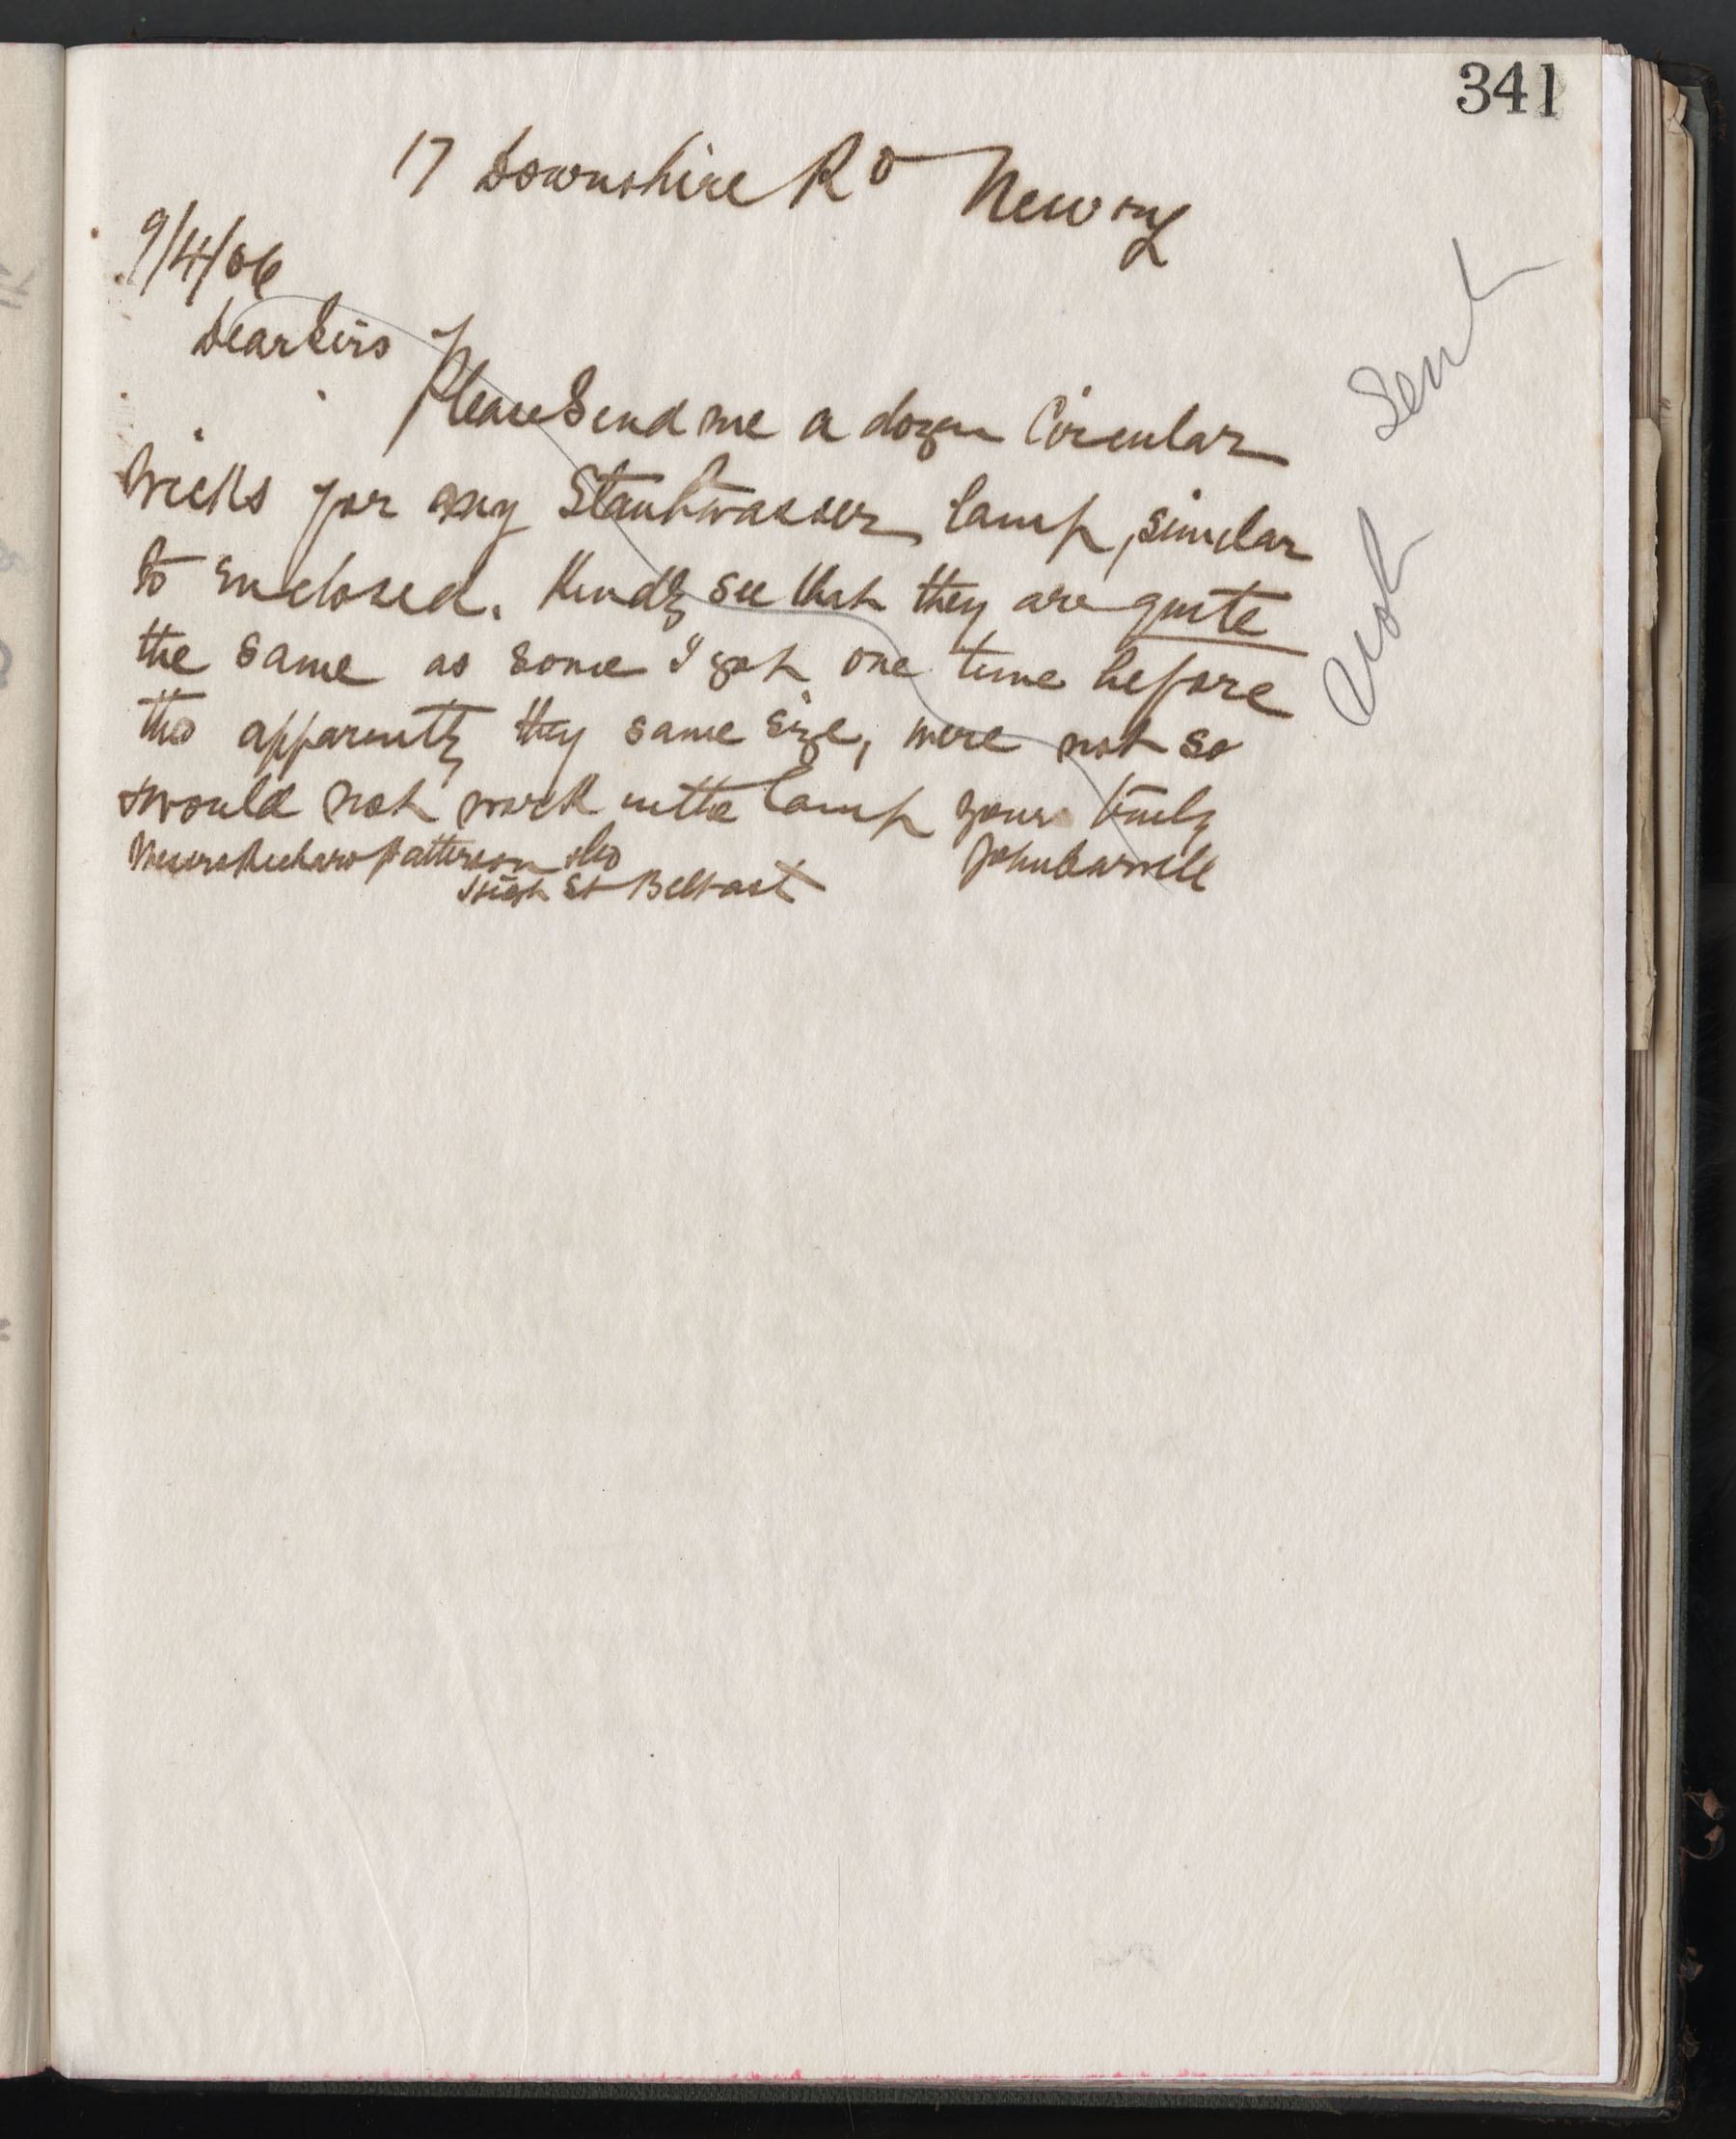 341
17 Downshire Rd Newry
9/4/06
Dear Sirs
Please Send me a dozen Circular
wicks for my Stanhwasser lamp, similar
to enclosed. Kindly see that they are quite
the same as some I got one time before
tho apparently they same size, were not so
+ would not work in the lamp yours truly
Messrs Richard Patterson & Co
John
High St Belfast
Not Sent